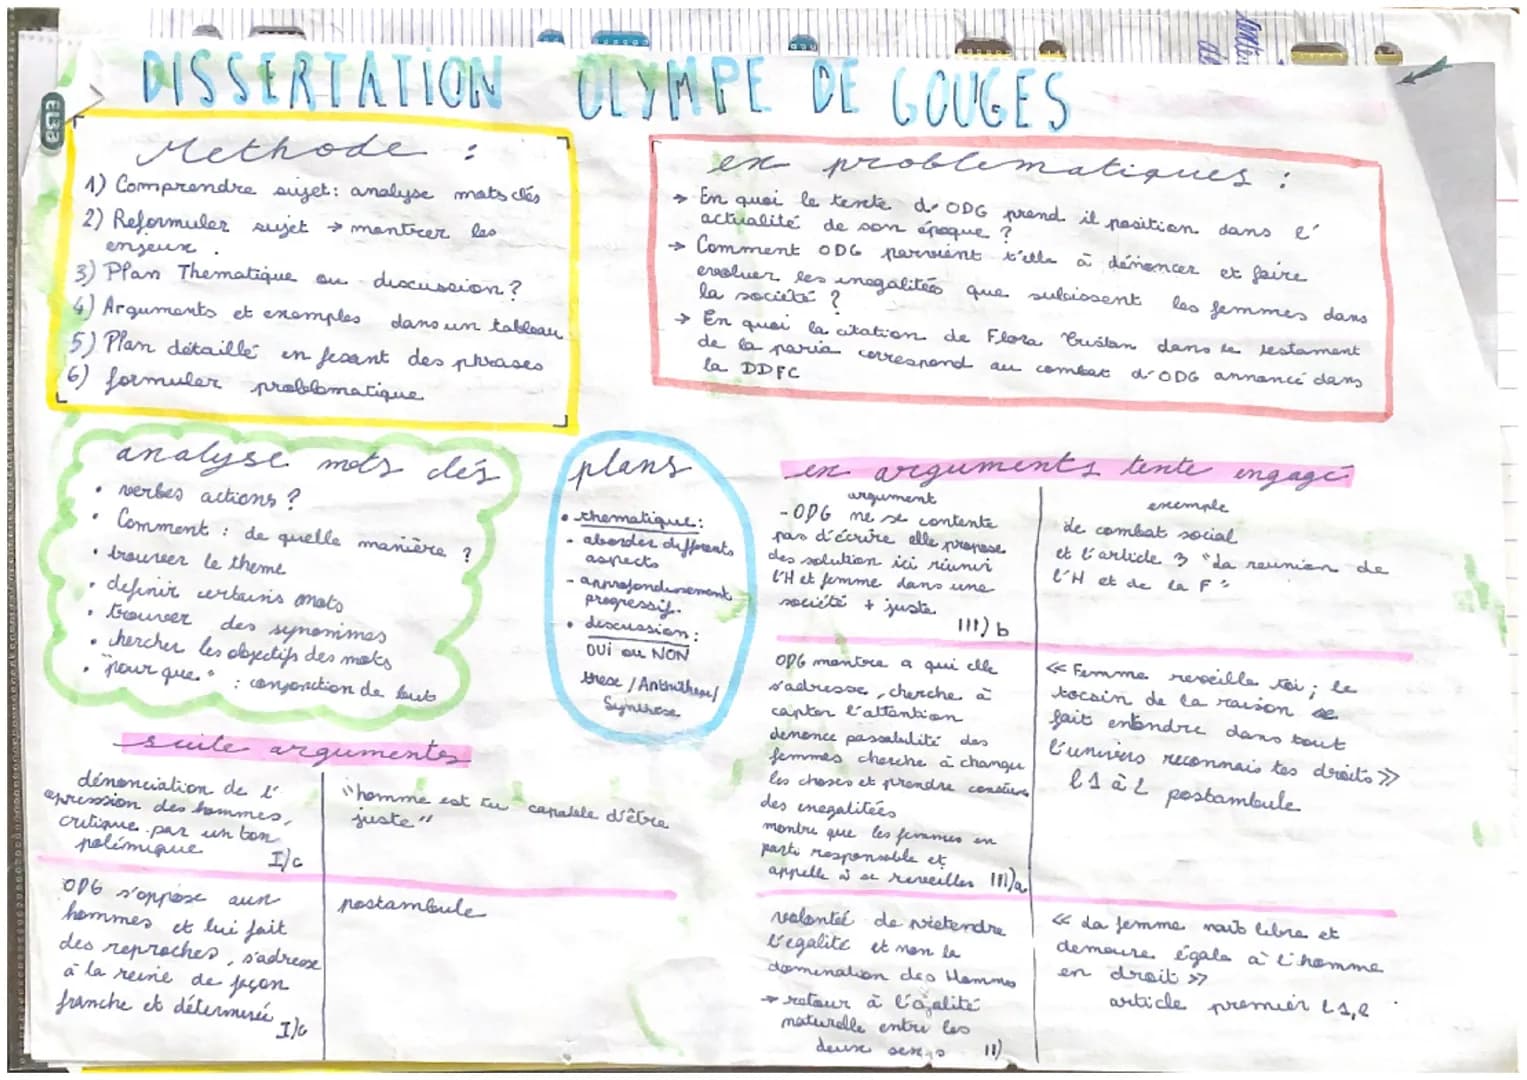 DISSERTATION OLYMPE DE GOUGES
Methode :
1) Comprendre sujet: analyse mots clés
2) Reformuler sujet → montrer les
enjeux.
3) Plan Thematique ou discussion ?
4) Arguments et exemples dans un tableau
5) Plan détaillé en fesant des phrases
6) formuler problématique
ex problematiques :
→ En quoi le texte d'ODG prend il position dans l'
actualité de son époque ?
→ Comment ODG parvient t'elle à dénoncer et faire
evoluer les inegalités que subissent les femmes dans
la société ?
→ En quoi la citation de Flora Tristan dans le testament
de la paria correspond au combat d'ODG annoncé dans
la DDFC
analyse mots clés
• verbes actions ?
• Comment : de quelle manière ?
• trouver le theme
• definir certains mots
• trouver des synonimes
• chercher les objectifs des mots
• "pour que" : conjonction de but
plans
• thematique :
- aborder differents
aspects
- approfondissement
progressif.
• discussion :
OUI ou NON
these / Antithese /
Synthese
ex arguments texte engagé
argument
- ODG ne se contente
pas d'écrire elle propose
des solution ici réunir
l'H et femme dans une
société + juste
III) b
exemple
de combat social
et l'article 3 "La reunion de
l'H et de la F"
ODG montre a qui elle
s'adresse, cherche à
capter l'attention
denonce passabilité des
femmes cherche à changer
les choses et prendre conscience
des inegalitées
montre que les femmes en
parti responsable et
appelle à se reveilles III)a
« Femme reveille toi ; le
tocsin de la raison se
fait entendre dans tout
l'univers reconnais tes droits »
l1 à 2 postambule
volonté de pretendre
l'egalité et non la
domination des Hommes
→ retour à l'égalité
naturelle entre les
deux sexes II)
« La femme nait libre et
demeure égale à l'homme
en droit »
article premier l1,2
suite arguments
dénonciation de l'
opression des hommes,
critique par un ton
polémique
I)c
"homme est tu capable d'être
juste"
ODG s'oppose aux
hommes et lui fait
des reproches, s'adresse
à la reine de façon
franche et déterminée
postambule